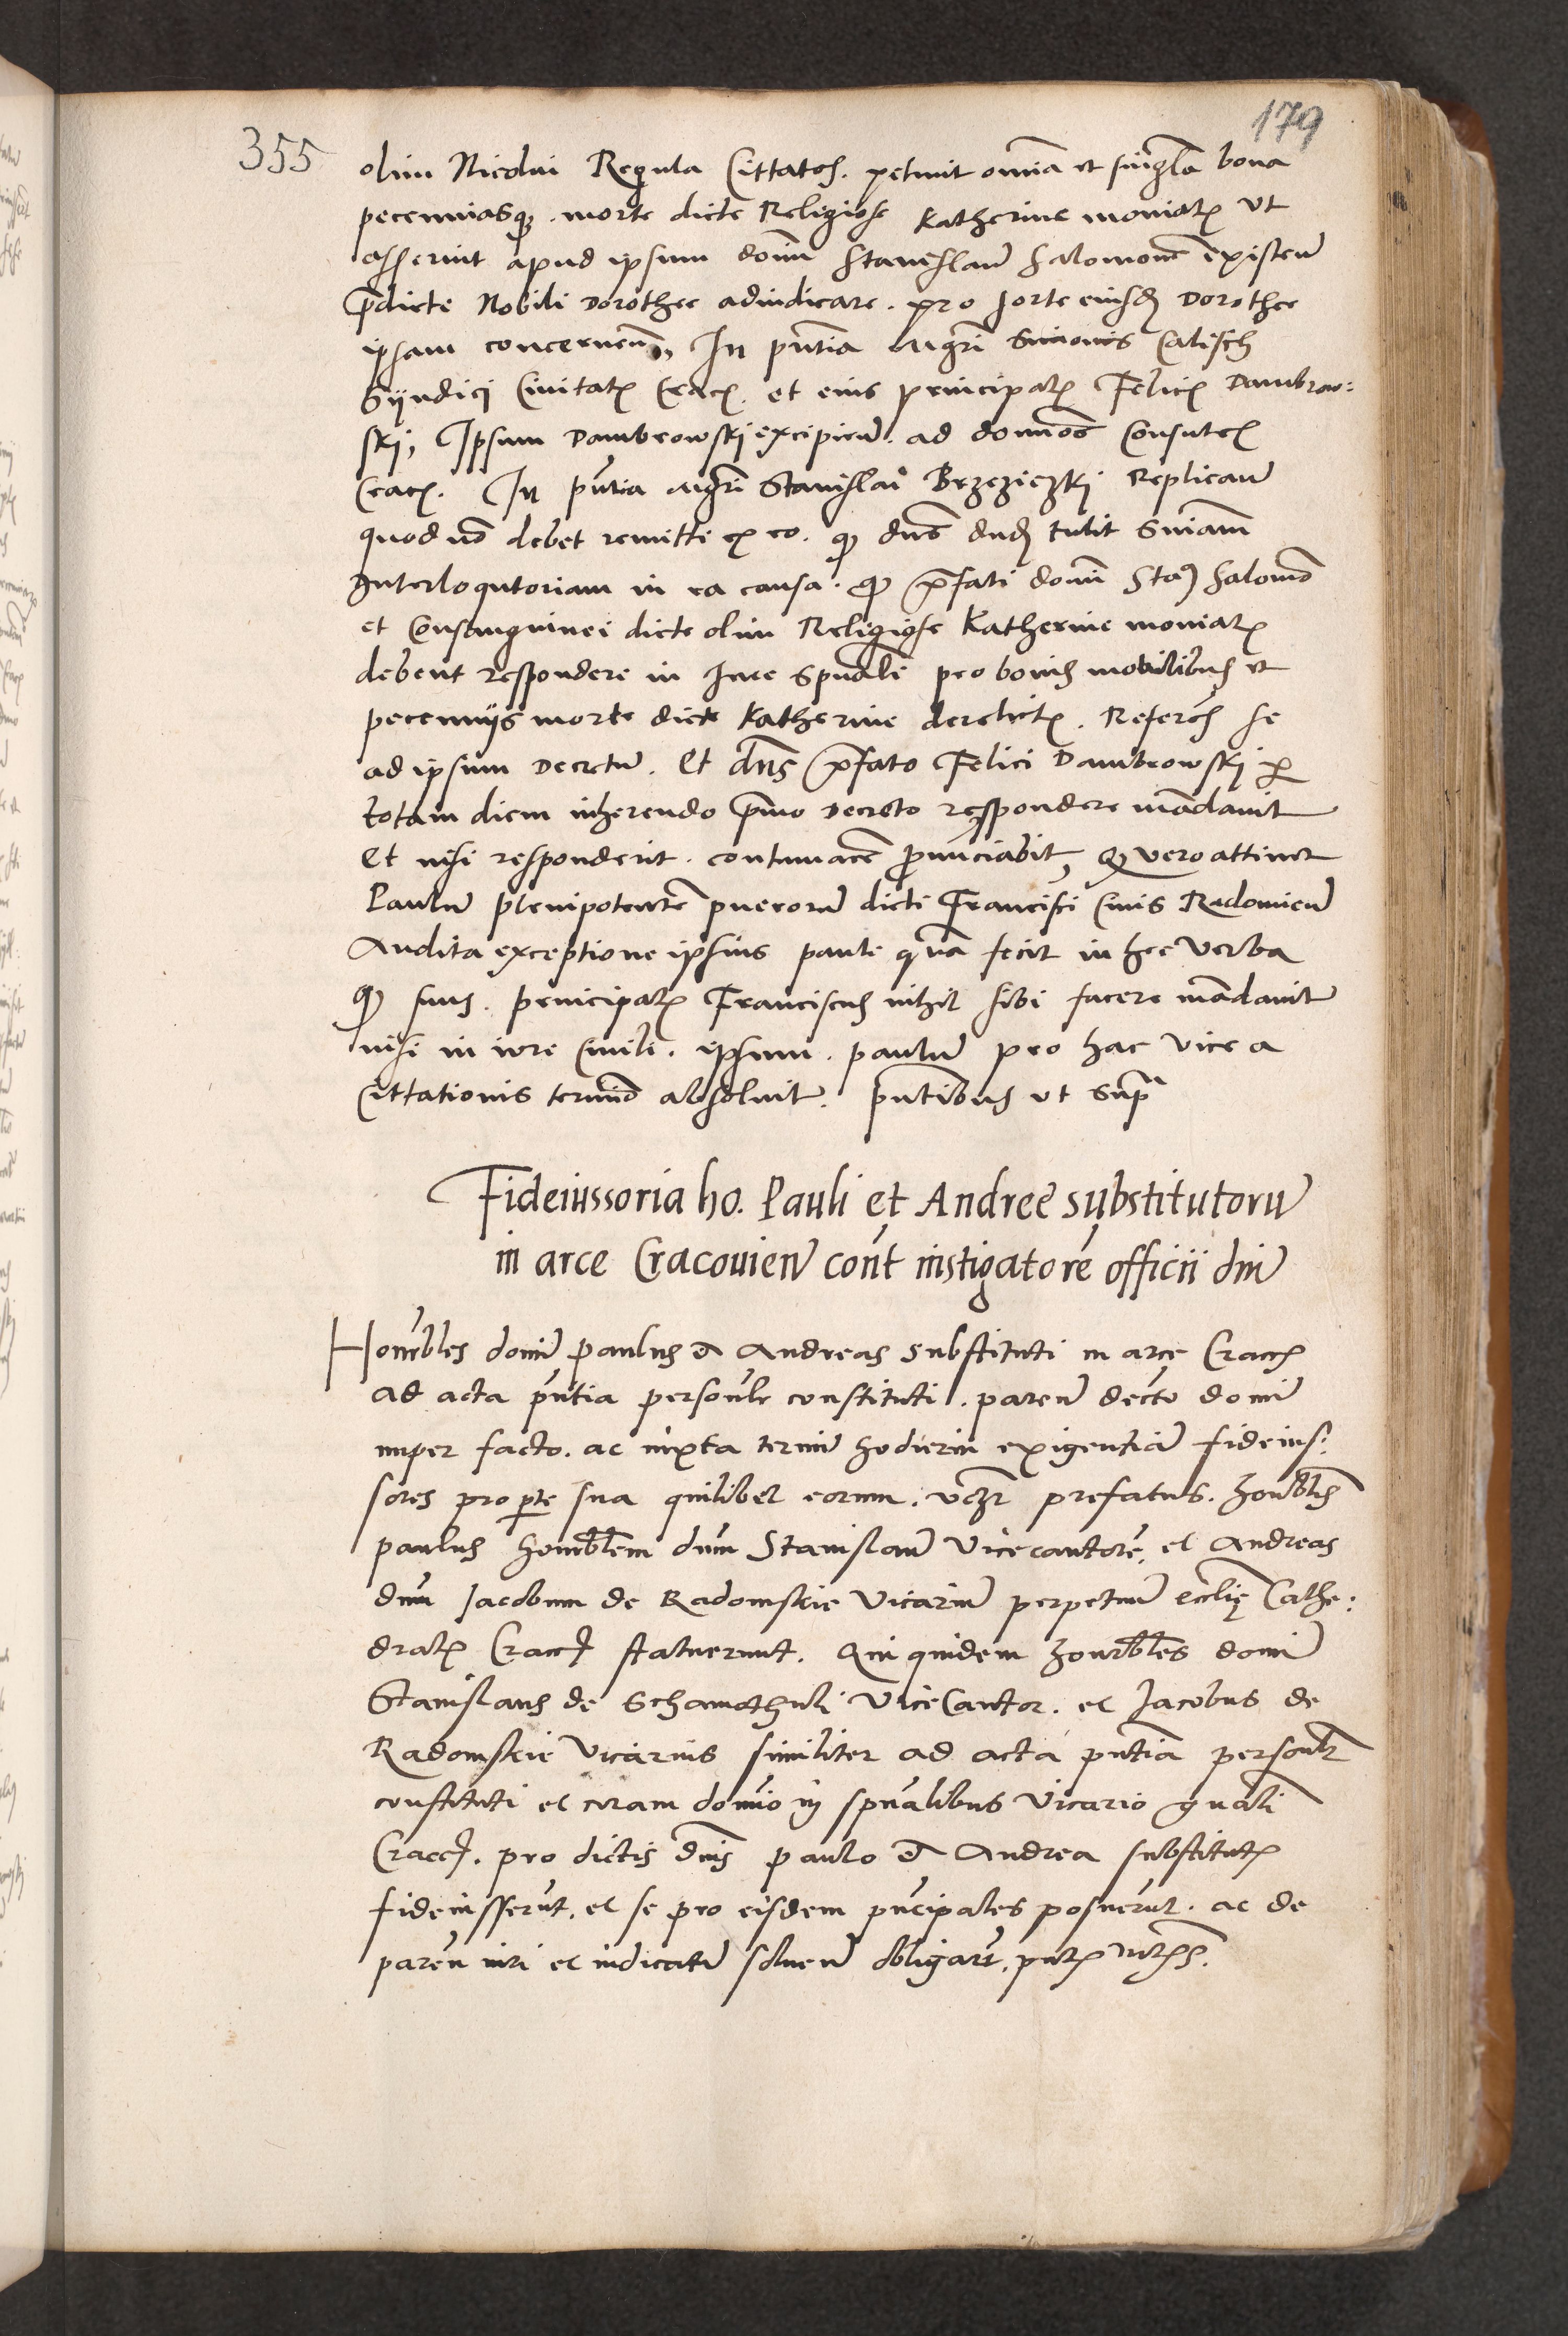 179
355
olim Nicolai Regula Cittatos. petiuit om̄ia et singl̄a bona
pecenniasqꝫ. morte dicte Religiose Katherine monialꝭ vt
asserint apud ipsum dom̄ Stanislaū Salomonē existeñ
p̄dicte Nobili Dorothee adiudicare. pro sorte eiusdꝫ Dorothee
ipsam concerneñ, In pn̄tia Mgr̄i Simonis Calisch
Syndici Ciuitatꝭ Cracꝭ. et eius principalꝭ Felicꝭ Dambrow:
skj, Ipsum Dambrowskj excipieñ. ad domnōs Consulesꝭ
Cracꝭ. In pn̄tia Mgr̄i Stanislai Brzezieczkj Replicañ
quod nō debet remitti ex eo. qꝫ dn̄s dudꝫ tulit Sniam̄
Interloqutoriam in ea causa. qꝫ p̄fati domī Staꝫ Salomō
et Consanguinei dicte olim Religiose Katherine monialꝭ
debent respondere in Iure Spūali pro bonis mobilibus et
pecenniis morte dicte Katherine derelictꝭ. Refereñs se
ad ipsum Decretū. Et dn̄s p̄fato Felici Dambrowskj ꝑ
totam diem inherendo p̄mo Decreto respondere mādauit
Et nisi responderit. contumacē pronūciabit, Qꝫ vero attinet
Paulū plenipotentē puerorū dicti Francisci Ciuis Radomieñ
Audita exceptione ipsius pauli quā fecit in hec verba
Qꝫ suus. principalꝭ Franciscus nihil sibi facere mādauit
nisi in iure Ciuili. ipsum. paulū pro hac vice a
Cittationis terminō absoluit. pn̄tibus vt supra
Fideiussoria ho. Pauli et Andree substitutorū
in arce Cracouieñ cont̄ instigatorē officii dn̄i
Honrbles domī paulus et Andreas substituti in arce Craccꝭ
ad acta pn̄tia personlr constituti. pareñ decto domī
nuper facto. ac iuxta termī hodierni exigentiā fideius:
sores pro ꝑte sua quilibet eorum. vꝫ prefatus. honrblis
paulus honrblem dnm Stanislaū Vicecantorē, et Andreas
dnm Jacobum de Radomskie Vicariū perpetuū eccl̄ię Cathe:
dralꝭ Craccꝭ statuerunt. Qui quidem honrbles domī
Stanislaus de Schamothuli ViceCantor. et Jacobus de
Radomskie Vicarius similiter ad acta pn̄tia personlr
constituti et coram domīo in spūalibus Vicario gn̄ali
Craccꝭ. pro dictis dn̄is paulo et Andrea substitutꝭ
fideiusserūt. et se pro eisdem pn̄cipales posuerūt. ac de
pareñ iuri et iudicatū soluendꝭ obligarūt.